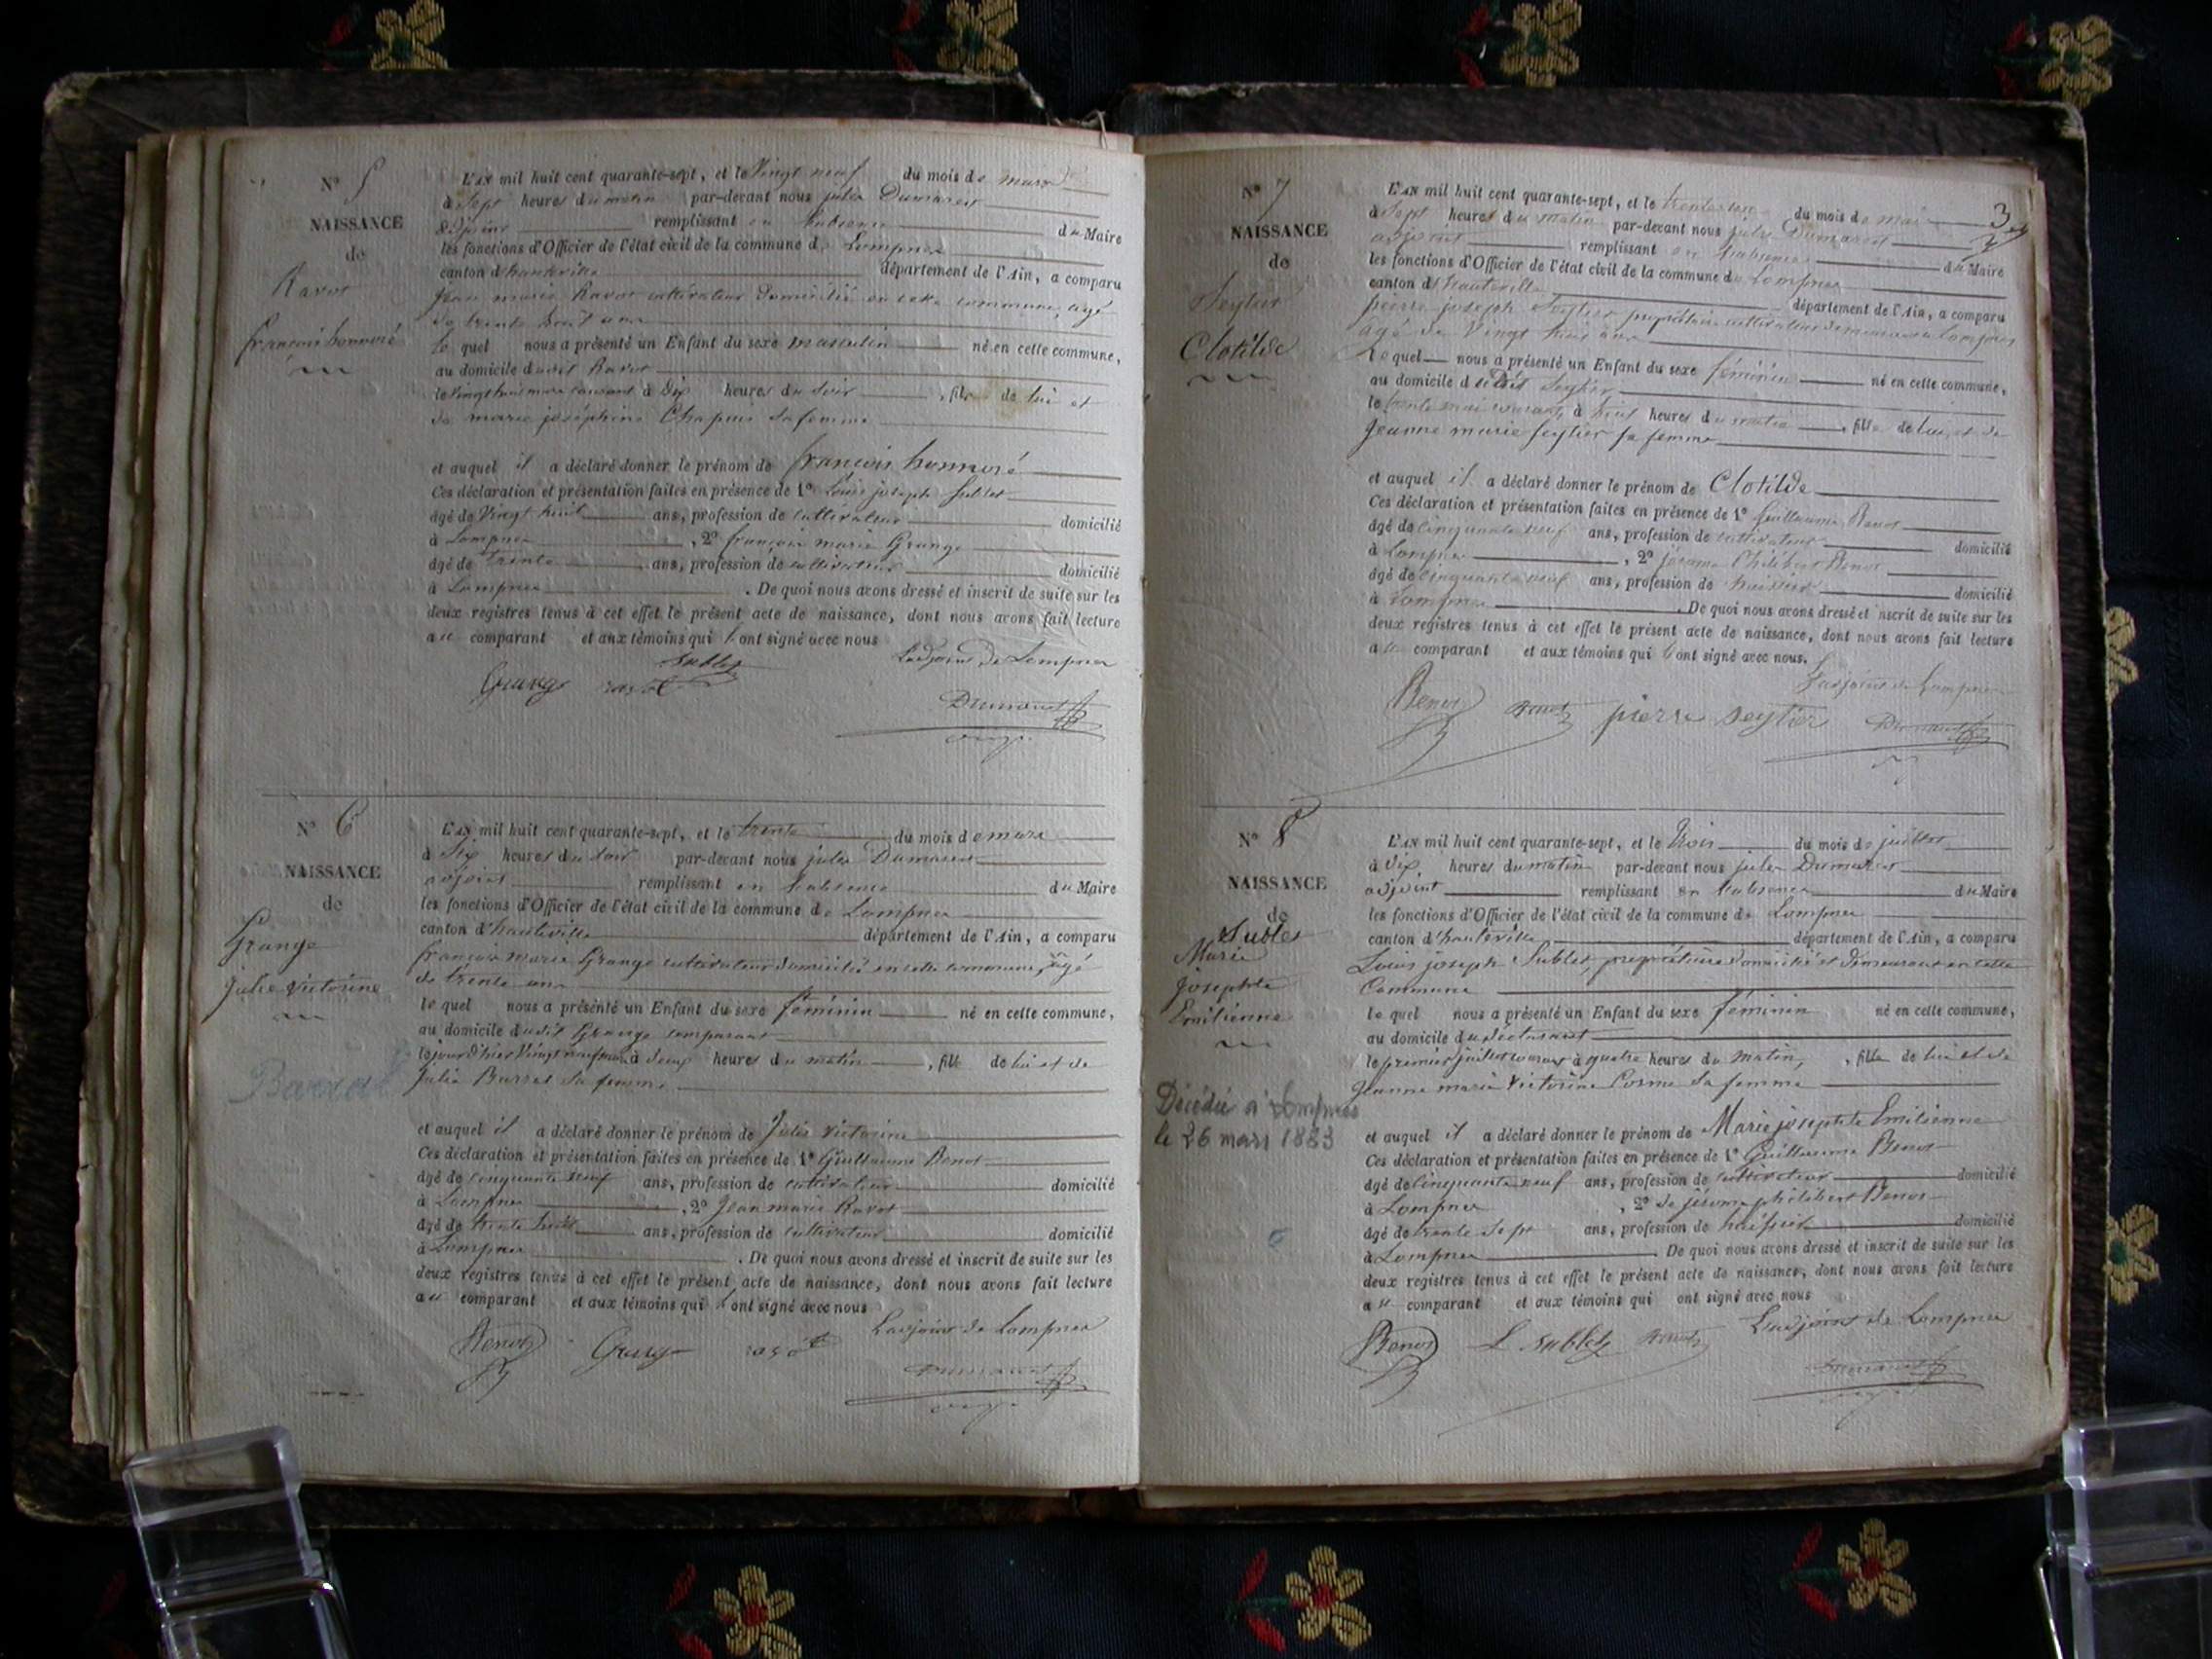 N° 5
NAISSANCE
de
Ravot
françois honnoré
L'AN mil huit cent quarante-sept, et le Vingt neuf du mois de mars
à Sept heures du matin par-devant nous jules Dumarest
adjoint remplissant en l'absence du Maire
les fonctions d'Officier de l'état civil de la commune de Lompnes
canton d'hauteville département de l'Ain, a comparu
Jean marie Ravot cultivateur domicilié en cette commune, agé
de trente huit ans
le quel nous a présenté un Enfant du sexe masculin né en cette commune,
au domicile dudit Ravot
le Vingt huit mars courant à dix heures du soir, fils de lui et
de marie joséphine Chapuis sa femme
et auquel il a déclaré donner le prénom de françois honnoré
Ces déclaration et présentation faites en présence de 1° Louis joseph Sublet
âgé de Vingt huit ans, profession de cultivateur domicilié
à Lompnes, 2° françois marie Grange
âgé de trente ans, profession de cultivateur domicilié
à Lompnes. De quoi nous avons dressé et inscrit de suite sur les
deux registres tenus à cet effet le présent acte de naissance, dont nous avons fait lecture
au comparant et aux témoins qui l'ont signé avec nous
Sublet L'adjoint de Lompnes
Grange ravot
Dumarest
N° 6
NAISSANCE
de
Grange
Julie Victorine
Barral
L'AN mil huit cent quarante-sept, et le trente du mois de mars
à Six heures du soir par-devant nous jules Dumarest
adjoint remplissant en l'absence du Maire
les fonctions d'Officier de l'état civil de la commune de Lompnes
canton d'hauteville département de l'Ain, a comparu
françois marie Grange cultivateur domicilié en cette commune, agé
de trente ans
le quel nous a présenté un Enfant du sexe féminin né en cette commune,
au domicile dudit Grange comparant
le jour d'hier Vingt neuf mars à deux heures du matin, fille de lui et de
Julie Barral sa femme
et auquel il a déclaré donner le prénom de Julie Victorine
Ces déclaration et présentation faites en présence de 1° Guillaume Benot
âgé de cinquante neuf ans, profession de cultivateur domicilié
à Lompnes, 2° Jean marie Ravot
âgé de trente huit ans, profession de cultivateur domicilié
à Lompnes. De quoi nous avons dressé et inscrit de suite sur les
deux registres tenus à cet effet le présent acte de naissance, dont nous avons fait lecture
au comparant et aux témoins qui l'ont signé avec nous
L'adjoint de Lompnes
Benot Grange ravot
Dumarest
3
N° 7
NAISSANCE
de
Seytier
Clotilde
L'AN mil huit cent quarante-sept, et le trente un du mois de mai
à Sept heures du matin par-devant nous jules Dumarest
adjoint remplissant en l'absence du Maire
les fonctions d'Officier de l'état civil de la commune de Lompnes
canton d'hauteville département de l'Ain, a comparu
pierre joseph Seytier propriétaire cultivateur demeurant a Lompnes
agé de Vingt huit ans
le quel nous a présenté un Enfant du sexe féminin né en cette commune,
au domicile dudit Seytier
le trente mai courant à huit heures du matin, fille de lui, et de
Jeanne marie Seytier sa femme
et auquel il a déclaré donner le prénom de Clotilde
Ces déclaration et présentation faites en présence de 1° Guillaume Benot
âgé de cinquante neuf ans, profession de cultivateur domicilié
à Lompnes, 2° jérome Philibert Benot
âgé de cinquante neuf ans, profession de huissier domicilié
à Lompnes. De quoi nous avons dressé et inscrit de suite sur les
deux registres tenus à cet effet le présent acte de naissance, dont nous avons fait lecture
au comparant et aux témoins qui l'ont signé avec nous.
L'adjoint de Lompnes
Benot Benot pierre seytier Dumarest
N° 8
NAISSANCE
de
Sublet
Marie
Josephte
Emilienne
Décédée à Lompnes
le 26 mars 1883
L'AN mil huit cent quarante-sept, et le trois du mois de juillet
à dix heures du matin par-devant nous jules Dumarest
adjoint remplissant en l'absence du Maire
les fonctions d'Officier de l'état civil de la commune de Lompnes
canton d'hauteville département de l'Ain, a comparu
Louis joseph Sublet, propriétaire domicilié et demeurant en cette
Commune
le quel nous a présenté un Enfant du sexe féminin né en cette commune,
au domicile du déclarant
le premier juillet courant à quatre heures du matin, fille de lui et de
Jeanne marie Victorine Cosme sa femme
et auquel il a déclaré donner le prénom de Marie josephte Emilienne
Ces déclaration et présentation faites en présence de 1° Guillaume Benot
âgé de cinquante neuf ans, profession de cultivateur domicilié
à Lompnes, 2° de jérome philibert Benot
âgé de trente sept ans, profession de huissier domicilié
à Lompnes. De quoi nous avons dressé et inscrit de suite sur les
deux registres tenus à cet effet le présent acte de naissance, dont nous avons fait lecture
au comparant et aux témoins qui ont signé avec nous
L'adjoint de Lompnes
Benot L Sublet Benot
Dumarest